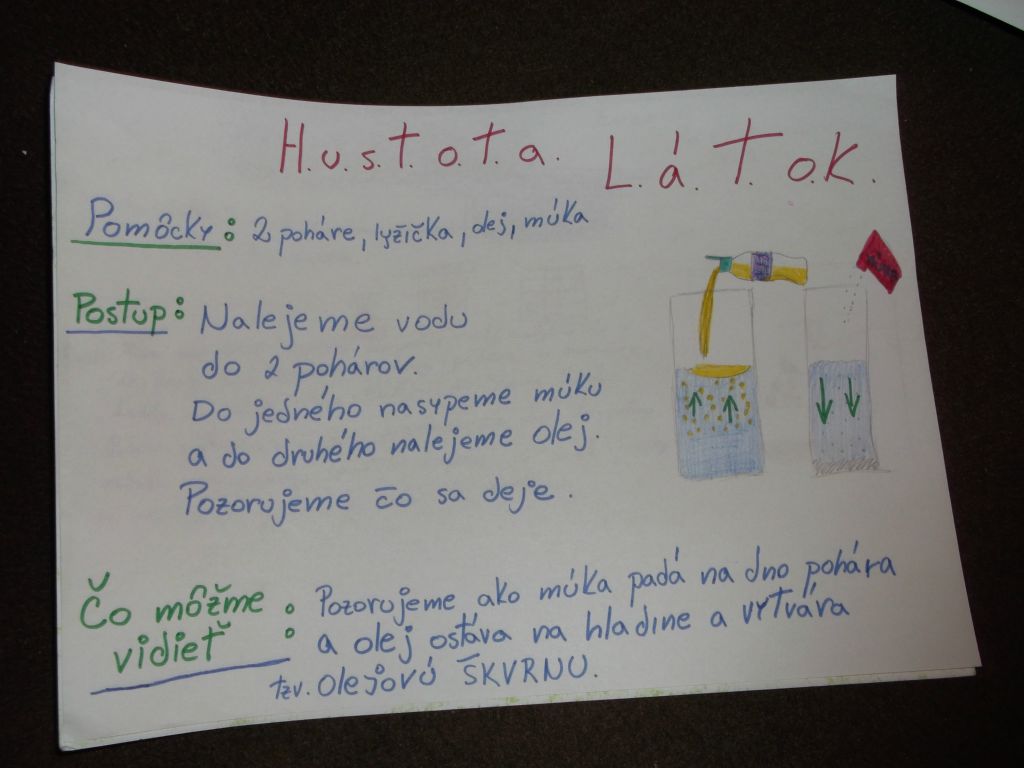 H.u.s.T.o.T.a. L.á.T.o.K.
Pomôcky: 2 poháre, lyžička, olej, múka
Postup: Nalejeme vodu
do 2 pohárov.
Do jedného nasypeme múku
a do druhého nalejeme olej.
Pozorujeme čo sa deje.
Čo môžme vidieť: Pozorujeme, ako múka padá na dno pohára
a olej ostáva na hladine a vytvára
tzv. olejovú ŠKVRNU.